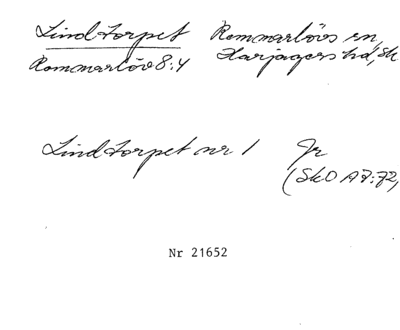 Lindtorpet Rommarlövs sn,
Rommarlöv 8:4 Harjagers hd, Sk
Lindtorpet nr 1 Jr
(SkO A7:72,
Nr 21652